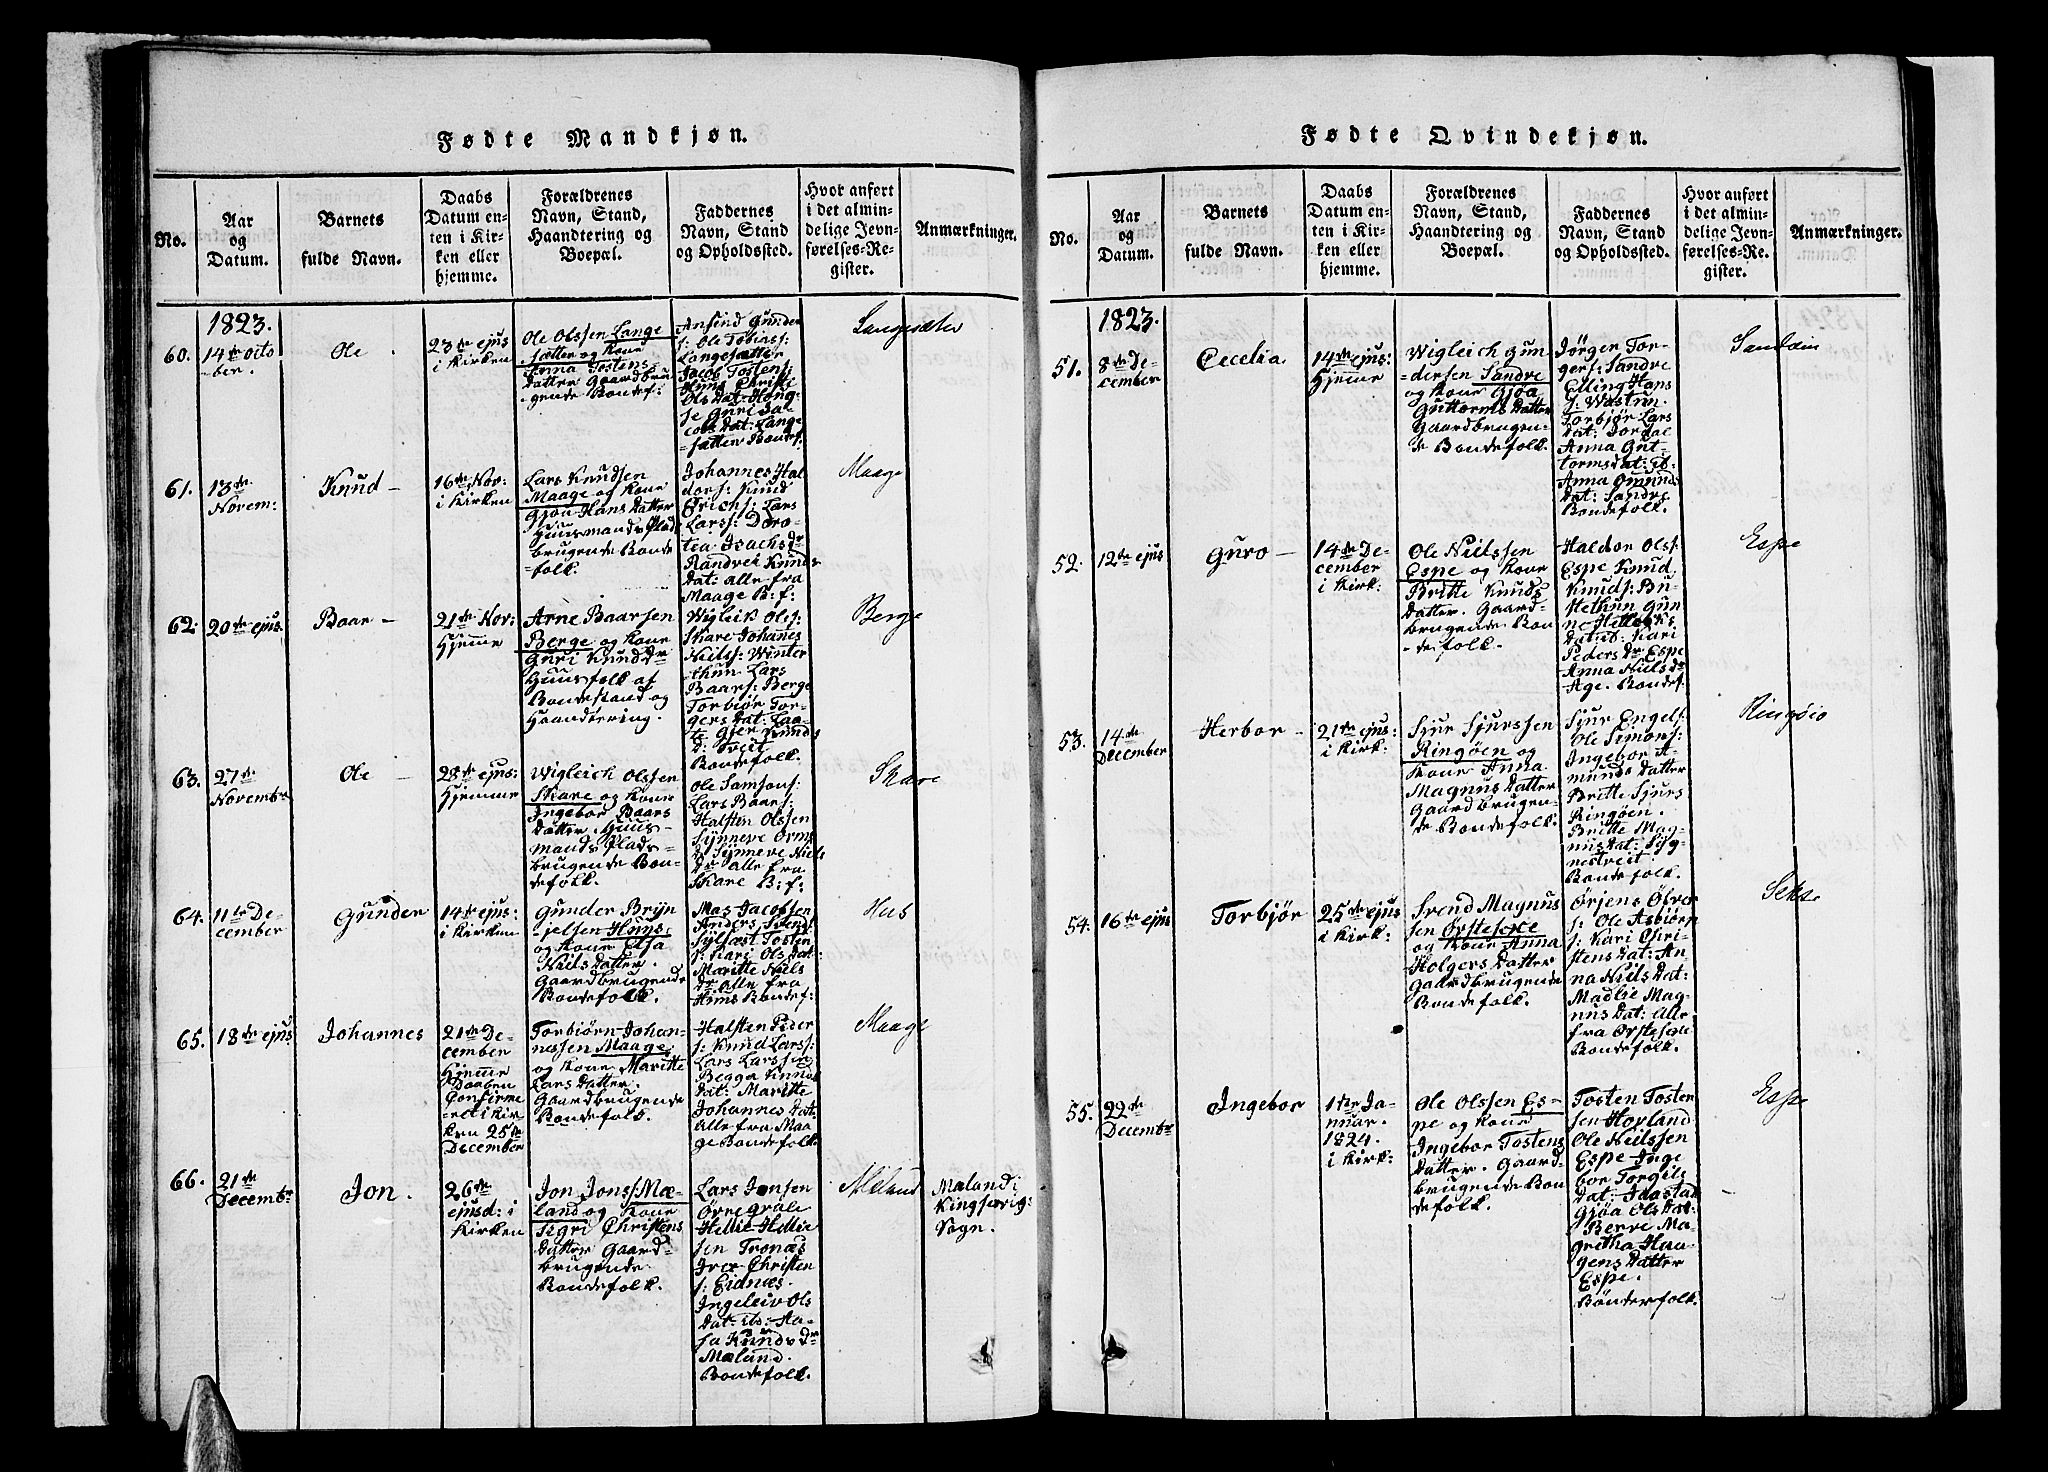 Fødte Mandkjøn.
No.
Aar
og
Datum.
Barnets
fulde Navn.
Daabs
Datum en-
ten i Kir-
ken eller
hjemme.
Forældrenes
Navn, Stand,
Haandtering og
Boepæl.
Faddernes
Navn, Stand
og Opholdssted.
Hvor anført
i det almin-
delige Jevn-
førelses-Re-
gister.
Anmærkninger.
1823.
60.
14de octo
ber.
Ole
23de ejus
i Kirken
Ole Olssen Lange
sætter og Kone
Anna Tostens
datter Gaardbru
gende Bondef:
Ansind Gunder
s: Ole Tobias:
Langesætter
Jacob Tostens:
Anna Christi
Ols Dat: Hong-
se Guri Ja-
cobs Dat: Lange
sætter Bondef:
Langesæter
61.
13de
Novem:
Knud
16de Nov:
i Kirken
Lars Knudsen
Maage og Kone
Gjøa Hans Datter
Huusmands Plads
brugende Bonde
folk.
Johannes Hal
dors: Knud
Erichs: Lars
Lars: Doro-
tea Isachs dr
Randvei Knuds
Dat: alle fra
Maage B: f:
Maage
62.
20de ejus
Baar
21de Nov:
Hjemme
Arne Baarsen
Berge og Kone
Guri Knuds Dr
Huusfolk af
Bondestand og
Haandtering.
Wigleik Ols:
Skare Johanes
Niels: Winter
thun Lars
Baars: Berge
Torbiør Tor-
gers Dat:
Gjer Knuds
d: Treit
Bondefolk.
Berge
63.
27de
Novembr
Ole
28de ejus:
Hjemme
Wigleich Olssen
Skare og Kone
Ingebor Baars
Datter. Huus-
mands Plads-
brugende Bon-
defolk.
Ole Samsons:
Lars Baars:
Halsten Olssen
Synneve Orms
d Synneve Niels
Dr alle fra
Skare B: f:
Skare
64.
11te De-
cember
Gunder
14de ejus:
i Kirken
Gunder Bryn
jelsen Huus
og Kone Elsa
Niels Datter.
Gaardbrugende
Bondefolk.
Mas Jacobsen
Anders Svend
Sylfæst Tosten
s: Kari Ols Dat:
Maritte Niels
Dr alle fra
Huus Bondef:
Hus
65.
18de ejus
Johannes
21de De-
cember
Hjemme
Daaben
Confirme
ret i Kir
ken 25de
December
Torbiørn Johan-
nessen Maage
og Kone Maritte
Lars Datter.
Gaardbrugende
Bondefolk.
Halsten Peder
s: Knud Lars:
Lars Larssen
Begga Knuds
Dat: Maritte
Johannes Dat.
alle fra Maa
ge Bondefolk.
Maage
66.
21de
Decembr
Jon.
26de
ejusd: i
Kirken
Jon Jons: Mæ-
land og Kone
Sigri Christens
Datter Gaard-
brugende
Bondefolk.
Lars Jonsen
Ovregrale
Hellie Hellie
sen Tronæs
Iver Christen
s: Eidnæs.
Ingeleiv Ols
Dat: ib: Aa-
sa Knuds Dr
Mæland.
Bondefolk.
Mæland
Mæland i
Kingservig
Sogn.
Fødte Qvindekjøn.
No.
Aar
og
Datum.
Barnets
fulde Navn.
Daabs
Datum en-
ten i Kir-
ken eller
hjemme.
Forældrenes
Navn, Stand,
Haandtering og
Boepæl.
Faddernes
Navn, Stand
og Opholdssted.
Hvor anført
i det almin-
delige Jevn-
førelses-Re-
gister.
Anmærkninger.
1823.
51.
8de De-
cember
Cecelia
14de ejus:
Hjemme
Wigleich Gun
dersen Sandre
og Kone Gjøa
Guttorms Datter
Gaardbrugen-
de Bondefolk.
Jørgen Tor-
gers: Sandre
Elling Hans
s: Wastun.
Torbjør Lars
Dat: Jordal
Anna Gut-
tormsdat: ib.
Anna Omunds
Dat: Sandre
Bondefolk.
52.
12te ejus
Guro
14de De-
cember
i Kirk:
Ole Nielssen
Espe og Kone
Britte Knuds
Datter. Gaard-
brugende Bon
defolk.
Haldor Ols:
Espe Knud
Knuds: Bu-
Hethun Gun
ne Hellieks
Datt: Kari
Peders Dr Espe
Anna Niels dr
Age. Bondef.
Espe
53.
14de
December
Herbor
21de ejus:
i Kirk:
Sjur Sjurssen
Ringøen og
Kone Anna
Magnus Datter
Gaardbrugen-
de Bondefolk.
Sjur Engels:
Ole Simons:
Ingebor A-
munds Datter
Britte Sjurs
Ringøen.
Britte Mag-
nus Dat: Syg-
nestveit.
Bondefolk.
Ringøio
54.
16de ejus
Torbjør
25de ejus
i Kirk:
Svend Magnus
sen Ørstesexe
og Kone Anna
Holgers Datter
Gaardbrugende
Bondefolk.
Ørjens Ølver
s: Ole Asbiørn
s: Kari Chri-
stens Dat: An-
na Niels Dat:
Madlie Mag-
nus Dat: Alle
fra Ørstesexe
Bondefolk.
Sekse
55.
22de
Decembr
Ingebor
1ster Ja-
nuar.
1824.
i Kirk:
Ole Olssen Es-
pe og Kone
Ingebor Tostens
Datter. Gaard-
brugende Bon
defolk.
Tosten Tosten
sen Hovland
Ole Nielssen
Espe Inge
bor Torgils
Dat: Jaastad
Gjøa Ols Dat:
Berve Ma-
gretha Haa-
gens Datter
Espe.
Bønderfolk.
Espe